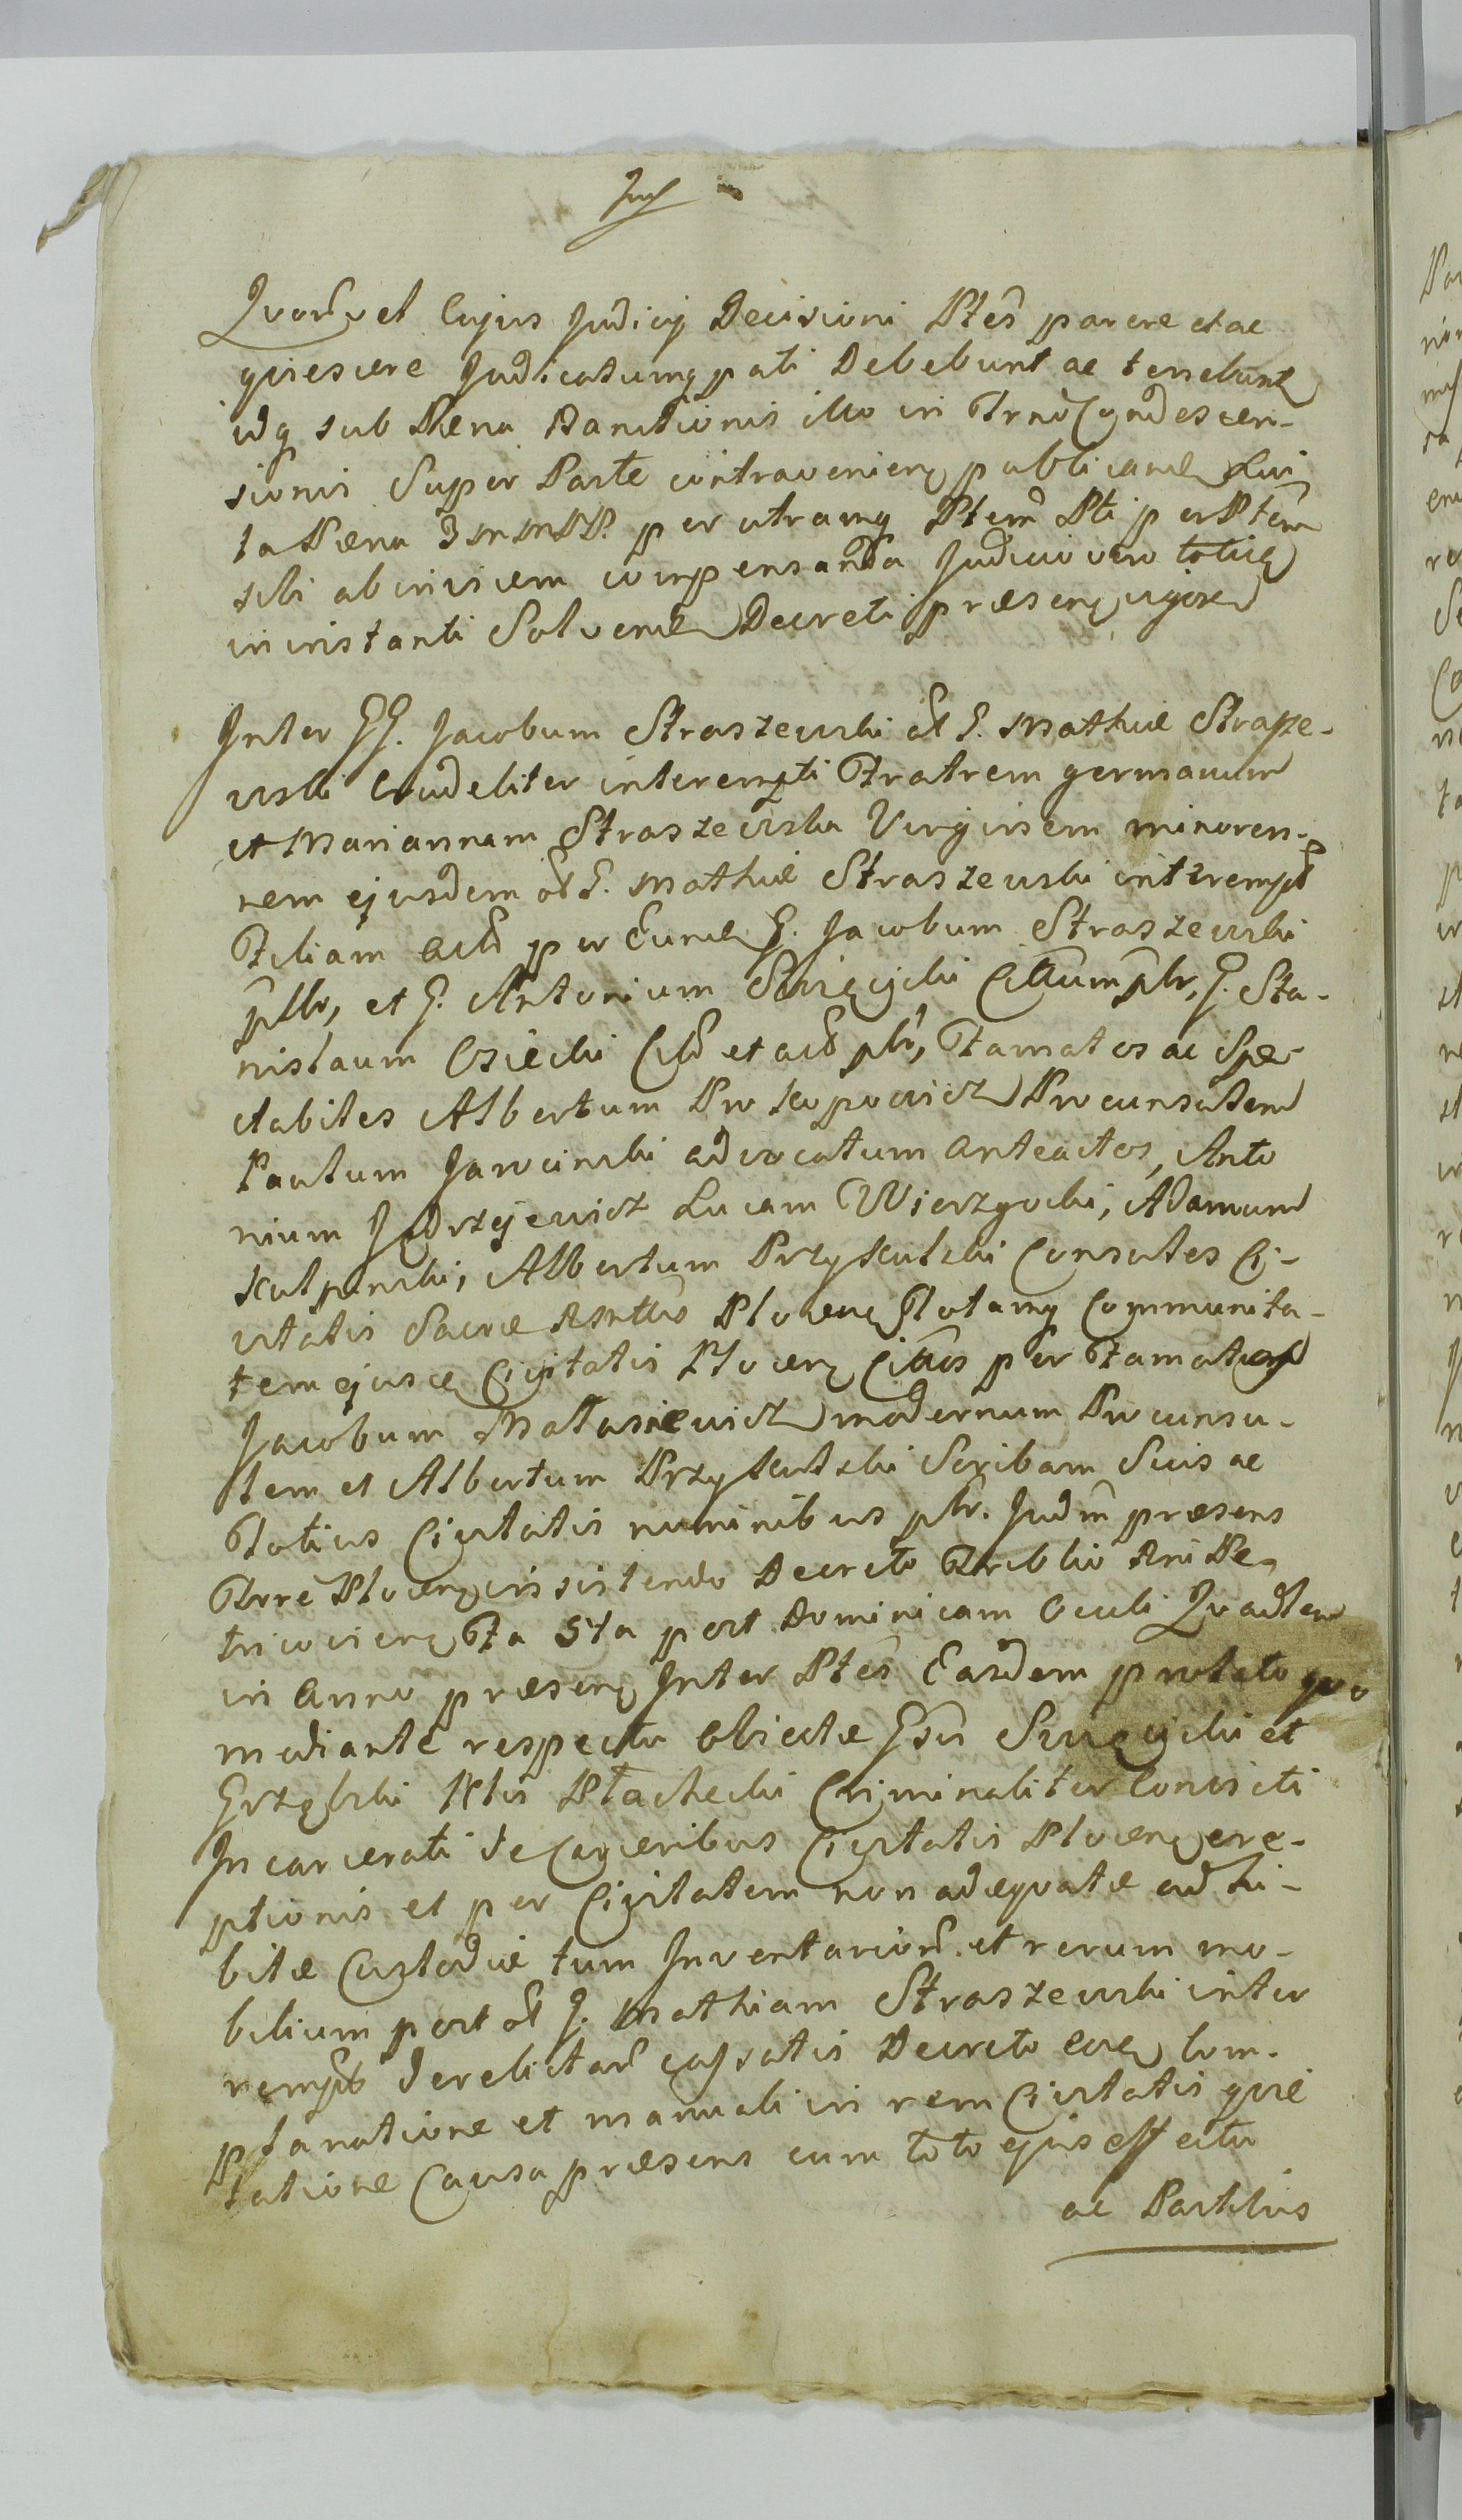 Quor̃ vel Cujus Judicij Decisioni Ptes̃ parere et ac
quiescere Judicatumq pati Debebunt ac tenebunt
idq sub Pœna Banitionis illo in Trno Condescen-
sionis Super Parte contravenien publicand Lui
ta Pœna 3 M M P P. per utramq Ptem Pti per Ptem
sibi ab invicem compensanda Judicio vero toties
in instanti Solvend Decreti præsen vigore
Inter GG. Jacobum Straszewski olim G. Mathiæ Strasze-
wski Crudeliter interempti Fratrem germanum
et Mariannam Straszewska Virginem minoren-
nem ejusdem ol G. Mathiæ Straszewski interempt
Filiam Act per Eund G. Jacobum Straszewski
pltr, et G. Antonium Święcicki Cittum pltr, G. Sta-
nislaum Osiecki Cit et act pltr, Famatos ac Spe-
ctabiles Albertum Prokopowicz Proconsulem
Paulum Jarocinski advocatum anteactos, Anto
nium Jędrzejewicz Lucam Wierzgocki, Adamum
Kulpinski, Albertum Przykutski Consules Ci-
vitatis Sacræ RMttis Plocen Totamq Communita-
tem ejusd Civitatis Plocen Cittos per Famatos
Jacobum Matasiewicz modernum Proconsu-
lem et Albertum Przykutski Scribam Suis ac
Totius Civitatis nominibus pltr. Judm præsens
Trre Plocen insistendo Decreto Triblio Rni Pe-
tricovien Fa 5ta post Dominicam Oculi Quadlem
in Anno præsen Inter Ptes Easdem prolato quo
mediante respectu Obiectæ Gsi Święcicki et
Grzębski Nlis Płachecki Criminaliter Convicti
Incarcerati de Carceribus Civitatis Plocen ere-
ptionis et per Civitatem non adæquatæ adhi-
bitæ Custodiæ tum Inventarior̃ et rerum mo-
bilium post ol G. Mathiam Straszewski inter
rempt derelictar̃ cassatis Decreto eoq Com-
planatione et manuali in rem Civitatis quie
tatione Causa præsens cum toto ejus effectu
ac Partibus